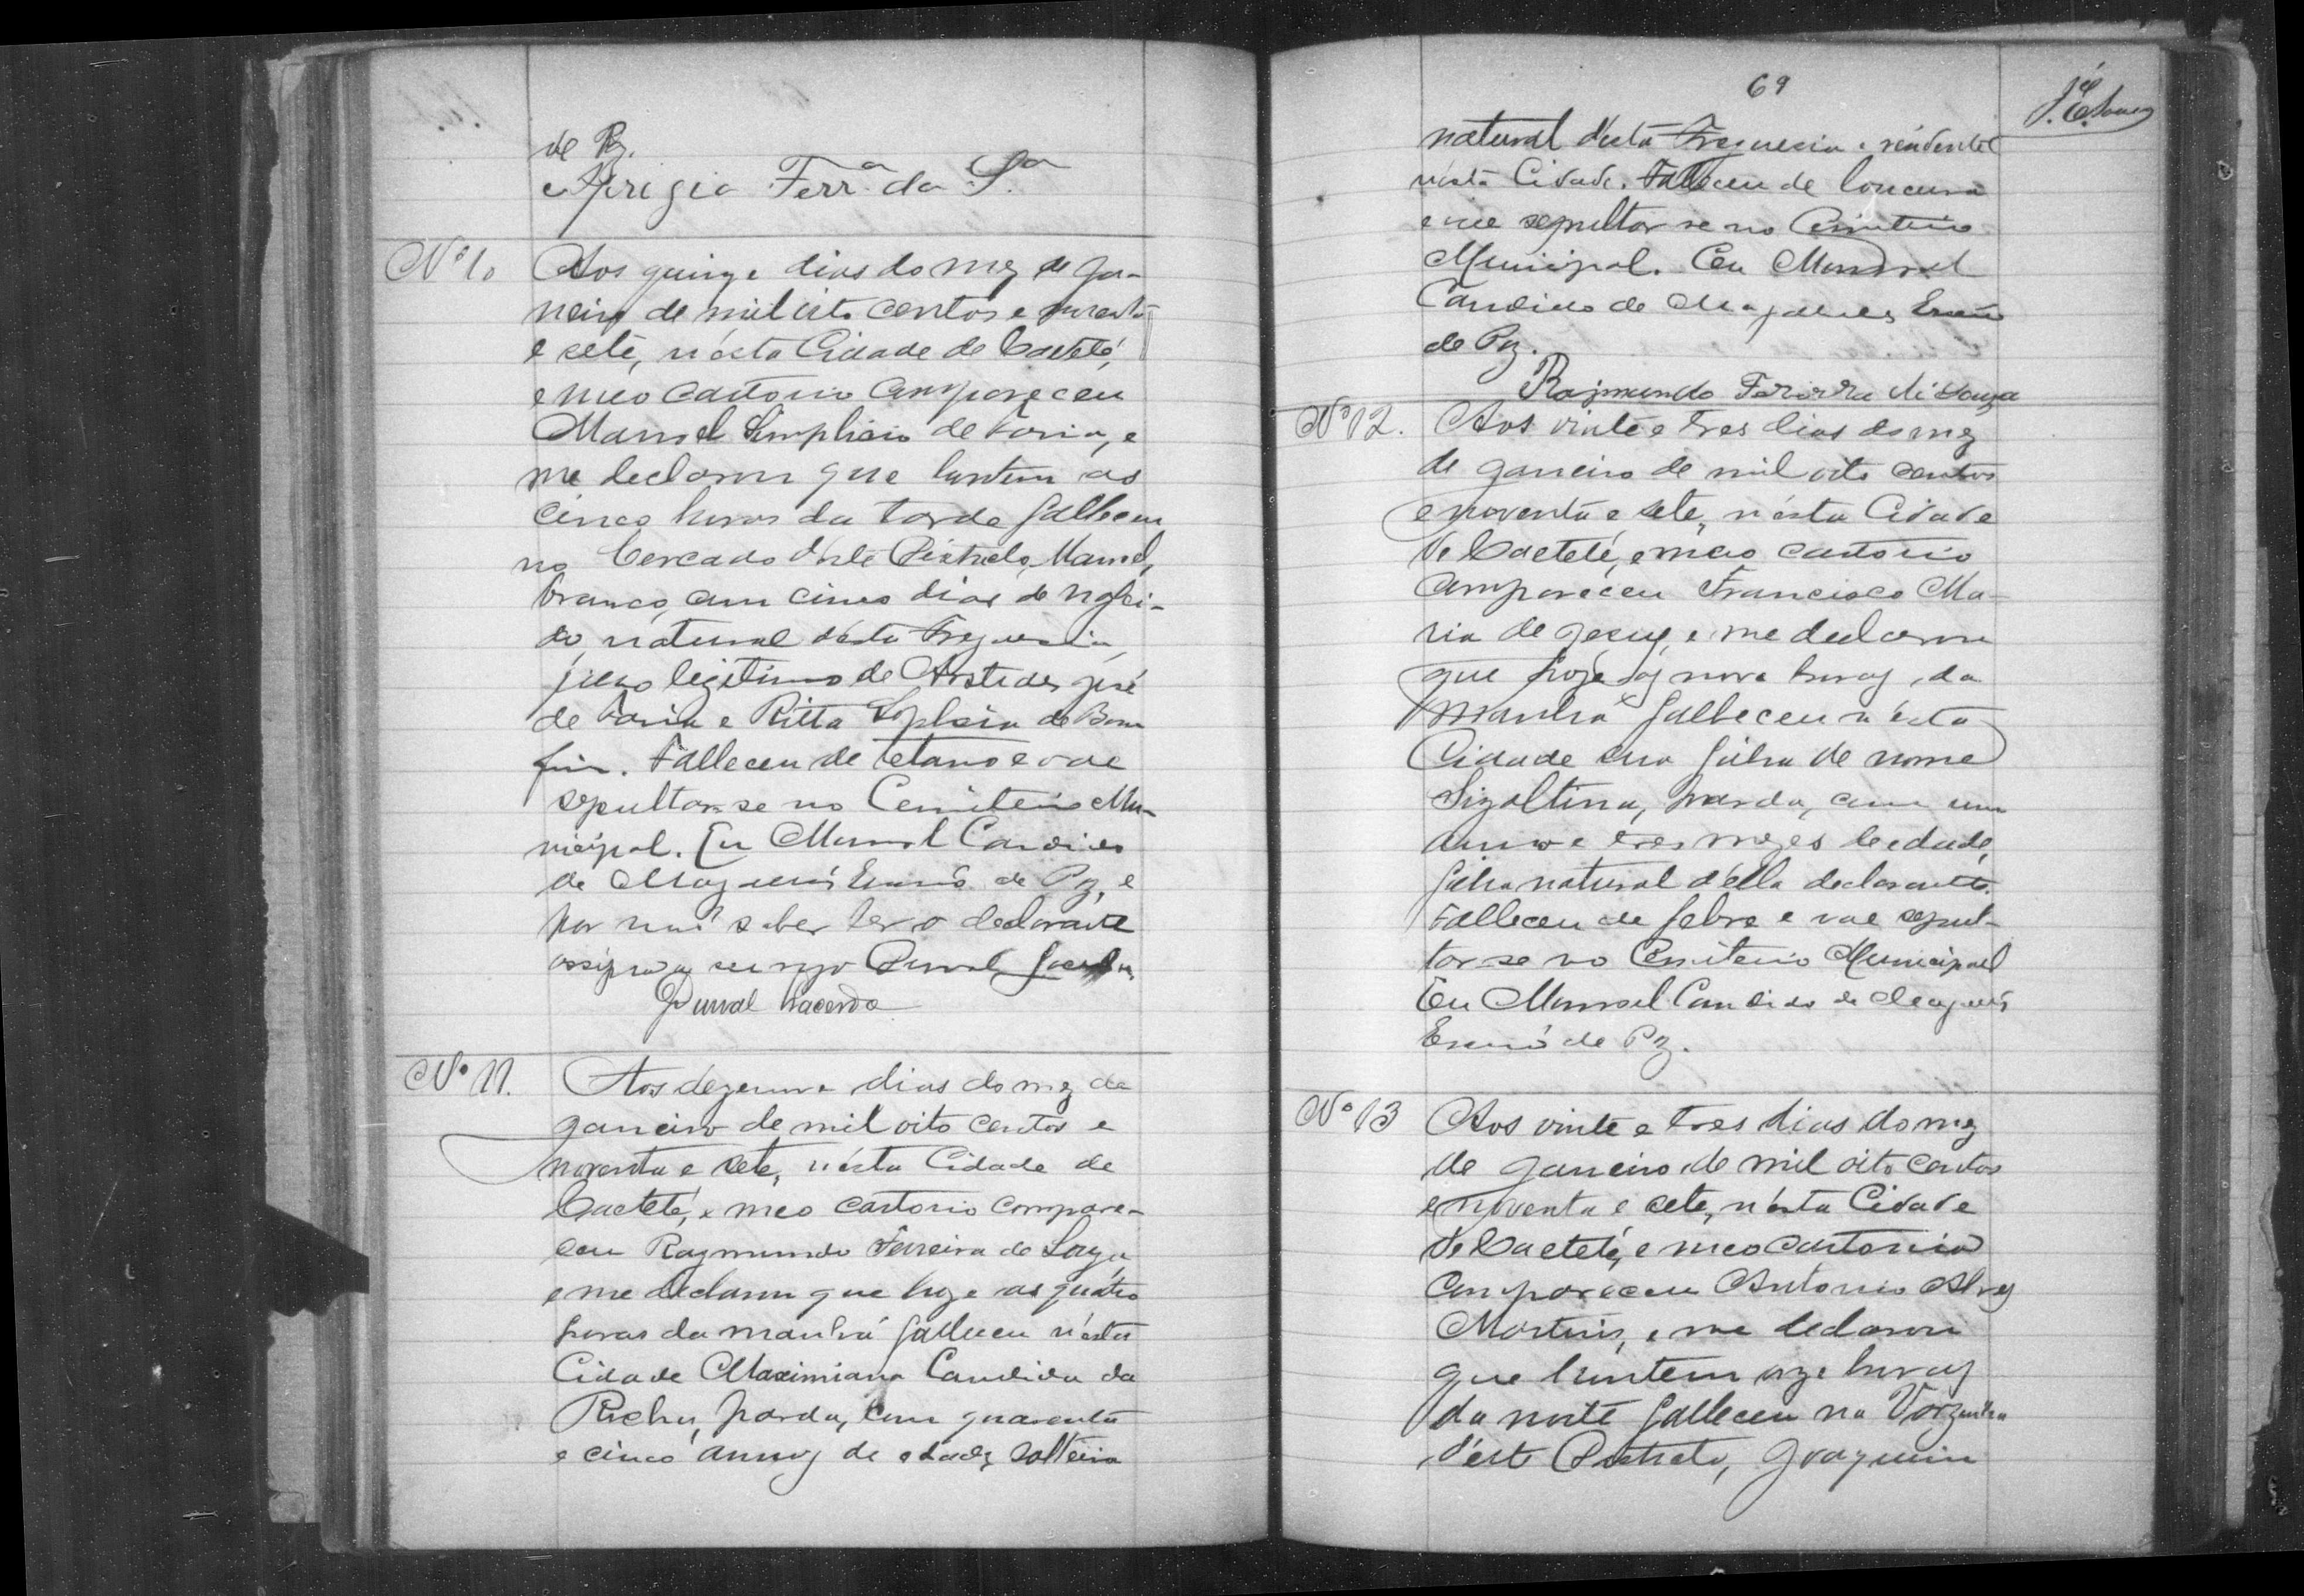 de Pz.
Aprigio Ferrª da Sª
Nº 10
Aos quinze dias do mez de Ja-
neiro de mil oito centos e noventa
e sete, n'esta Cidade de Caeteté,
e meo cartorio compareceu
Manoel Simplicio de Faria, e
me declarou que hontem as
cinco horas da tarde falleceu
no Cercado d'este Districto, Manoel,
branco, com cinco dias de nasci-
do, natural d'esta Freguesia,
filho legitimo de Aristides José
de Faria e Ritta de Bom
fim. Falleceu de tetano e vae
sepultar-se no Cemiterio Mu-
nicipal. Eu Manoel Candido
de Escrivão de Pz, e
por não saber ler o declarante
assigna a seu rogo Durval
Durval
Nº 11.
Aos dezenove dias do mez de
Janeiro de mil oito centos e
noventa e sete, n'esta Cidade de
Caeteté, e meo cartorio compare-
ceu Raymundo Ferreira de Souza,
e me declarou que hoje as quatro
horas da manhã falleceu n'esta
Cidade Maximiana Candida da
Rocha, parda, com quarenta
e cinco annos de edade, solteira
69
natural d'esta Freguesia e residente
n'esta Cidade. Falleceu de loucura
e vae sepultar se no Cemiterio
Municipal. Eu Manoel
Candido de Escrivão
de Pz.
Raymundo Ferreira di Souza
Nº 12.
Aos vinte e tres dias do mez
de Janeiro de mil oito centos
e noventa e sete, n'esta Cidade
de Caeteté, e meo cartorio
compareceu Francisca Ma-
ria de Jesus, e me declarou
que hoje as nove horas da
manhã falleceu n'esta
Cidade sua filha de nome
Sizaltina, parda, com um
anno e tres mezes de edade,
filha natural d'ella declarante.
Falleceu de febre e vae sepul-
tar-se no Cemiterio Municipal
Eu Manoel Candido de
Escrivão de Pz.
Nº 13
Aos vinte e tres dias do mez
de Janeiro de mil oito centos
e noventa e sete, n'esta Cidade
de Caeteté, e meo cartorio
compareceu Antonio Alves
Martins, e me declarou
que hontem onze horas
da noite falleceu na Varzinha
d'este Districto, Joaquim